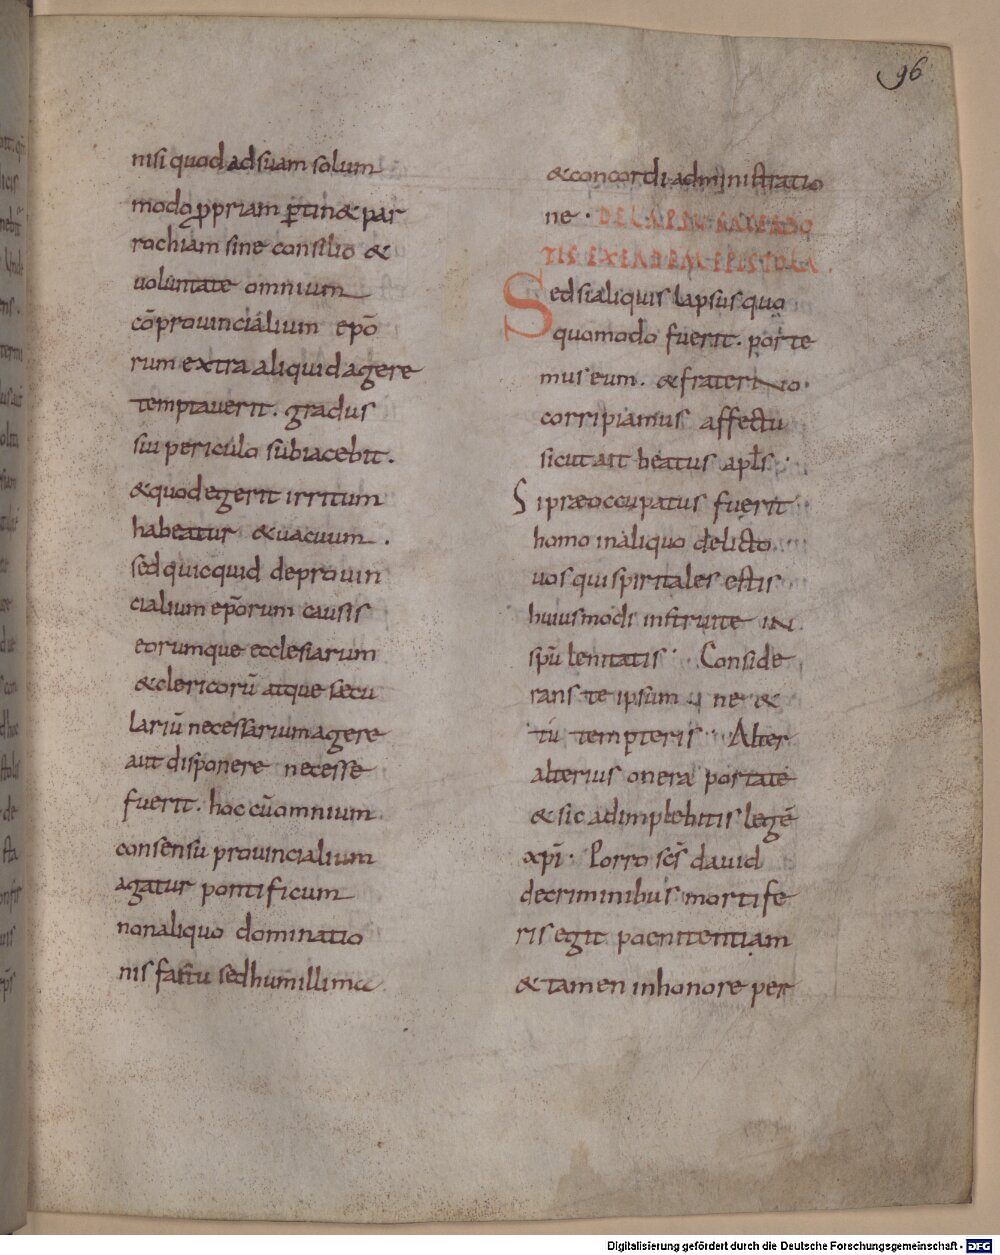 96
nisi quod ad suam solum
modo propriam ꝑtin& par
rochiam sine consilio &
uoluntate omnium
cōprouincialium epō
rum extra aliquid agere
temptauerit. gradus
sui periculo subiacebit.
& quod egerit irritum
habeatur & uacuum.
sed quicquid de prouin
cialium epōrum causis
eorumque ecclesiarum
& clericorū atque secu
lariū necessarium agere
aut disponere necesse
fuerit. hoc cū omnium
consensu prouincialium
agatur pontificum
non aliquo dominatio
nis fastu sed humillima
& concordi administratio
ne. DE LAPSU SACERDO
TIS EX EADEM EPISTOLA.
Sed si aliquis lapsus quo
quomodo fuerit. porte
mus eum. & fraterno
corripiamus affectu
sicut ait beatus apłs.
Si præoccupatus fuerit
homo in aliquo delicto
uos qui spiritales estis
huiusmodi instruite in
spū lenitatis. Conside
rans te ipsum ne &
tu tempteris. Alter
alterius onera portate
& sic adimplebitis legē
xpī. Porro scs̄ dauid
de criminibus mortife
ris egit paenitentiam
& tamen in honore per
Digitalisierung gefördert durch die Deutsche Forschungsgemeinschaft - DFG